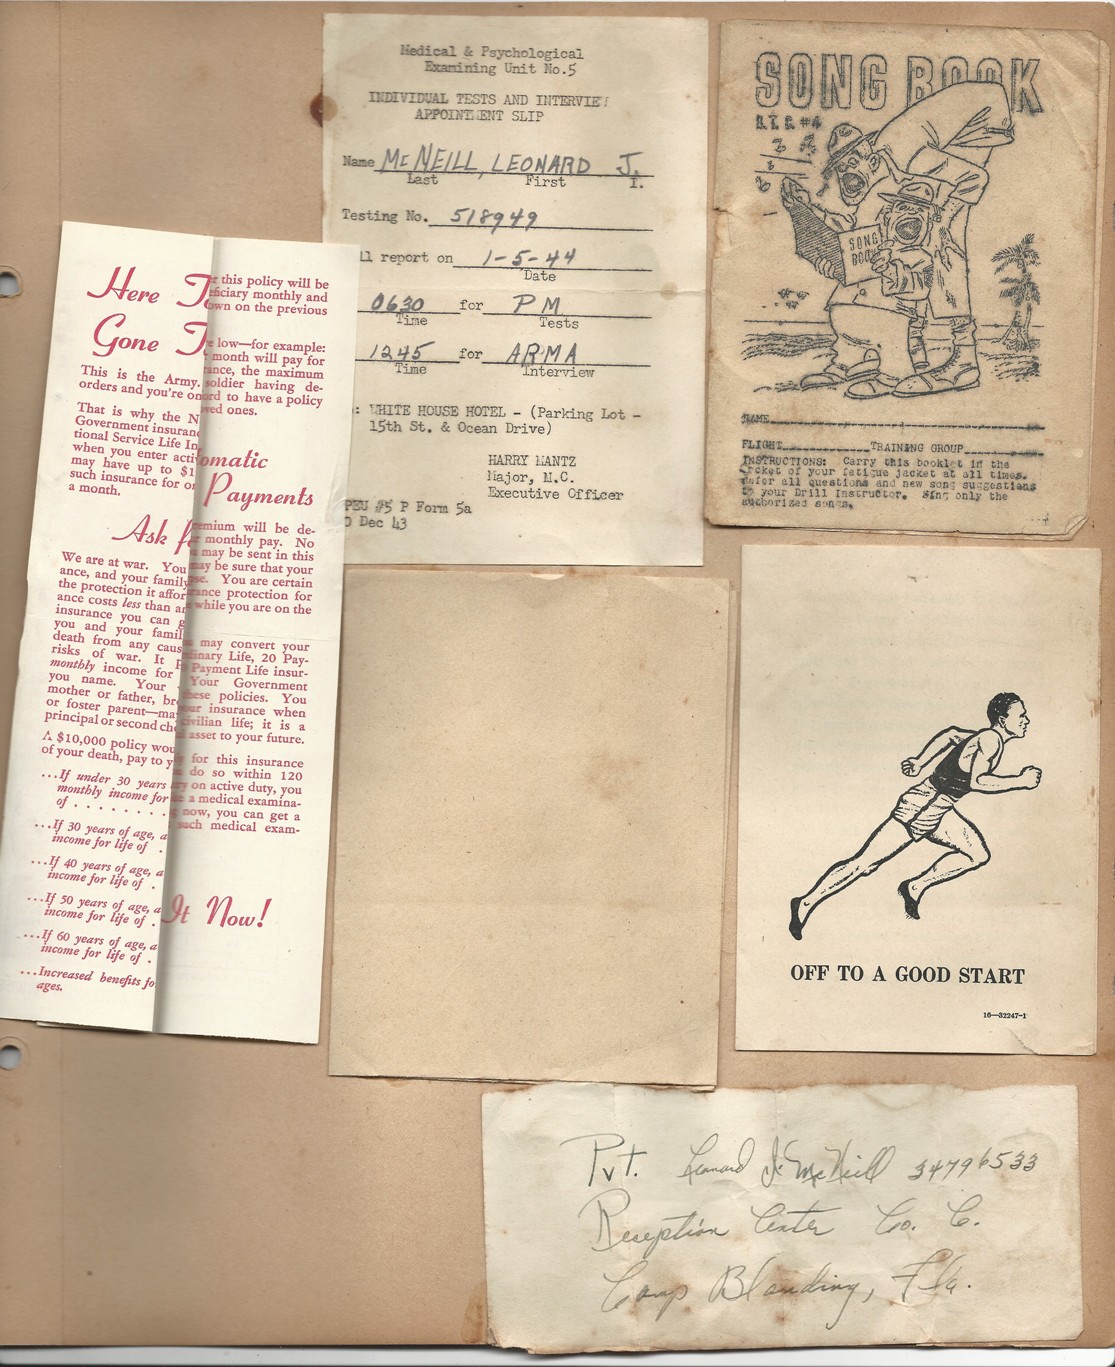 Medical & Psychological
Examining Unit No.5
INDIVIDUAL TESTS AND INTERVIEW
APPOINTMENT SLIP
Name McNEILL, LEONARD J.
Last First I.
Testing No. 518949
ll report on 1-5-44
Date
0630 for PM
Time Tests
1245 for ARMA
Time Interview
: WHITE HOUSE HOTEL - (Parking Lot -
15th St. & Ocean Drive)
HARRY MANTZ
Major, M.C.
Executive Officer
PEU #5 P Form 5a
Dec 43
SONG BOOK
B.T.C. #4
SONG
BOOK
NAME
FLIGHT TRAINING GROUP
INSTRUCTIONS: Carry this booklet in the
pocket of your fatigue jacket at all times.
Refer all questions and new song suggestions
to your Drill Instructor. Sing only the
authorized songs.
Here T
Gone T
This is the Army.
orders and you're on
That is why the N
Government insuranc
tional Service Life In
when you enter activ
may have up to $1
such insurance for on
a month.
Ask f
We are at war. You
ance, and your family
the protection it affor
ance costs less than a
insurance you can g
you and your famil
death from any caus
risks of war. It p
monthly income for
you name. Your
mother or father, br
or foster parent—ma
principal or second ch
A $10,000 policy wou
of your death, pay to y
...If under 30 years
monthly income for
of . . . . . . .
...If 30 years of age, a
income for life of .
...If 40 years of age, a
income for life of .
...If 50 years of age, a
income for life of .
...If 60 years of age, a
income for life of .
...Increased benefits fo
ages.
r this policy will be
eficiary monthly and
own on the previous
e low—for example:
month will pay for
rance, the maximum
soldier having de-
ord to have a policy
ved ones.
omatic
Payments
emium will be de-
monthly pay. No
may be sent in this
may be sure that your
se. You are certain
rance protection for
while you are on the
may convert your
dinary Life, 20 Pay-
Payment Life insur-
Your Government
these policies. You
ur insurance when
civilian life; it is a
asset to your future.
for this insurance
do so within 120
ry on active duty, you
e a medical examina-
g now, you can get a
such medical exam-
It Now!
OFF TO A GOOD START
16—32247-1
Pvt. Leonard J. McNeill 34796533
Reception Center Co. C.
Camp Blanding, Fla.